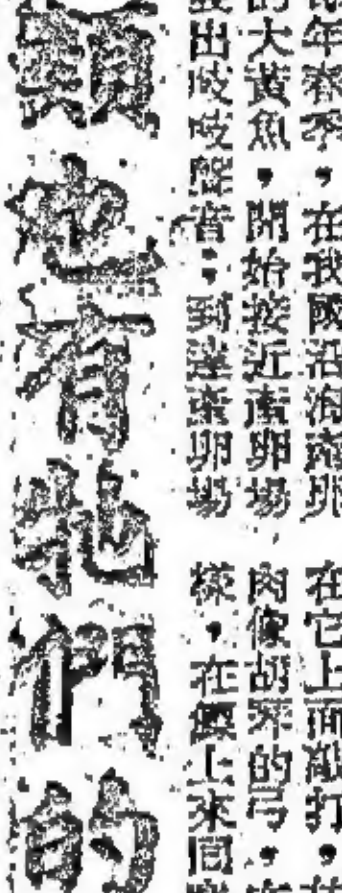 年春季，在我國沿海產卵
的大黃魚，開始接近產卵場
發出吱吱聲音；到達產卵場
在它上面敲打，
肉像胡琴的弓，
樣，在個上來回
類也有牠們的